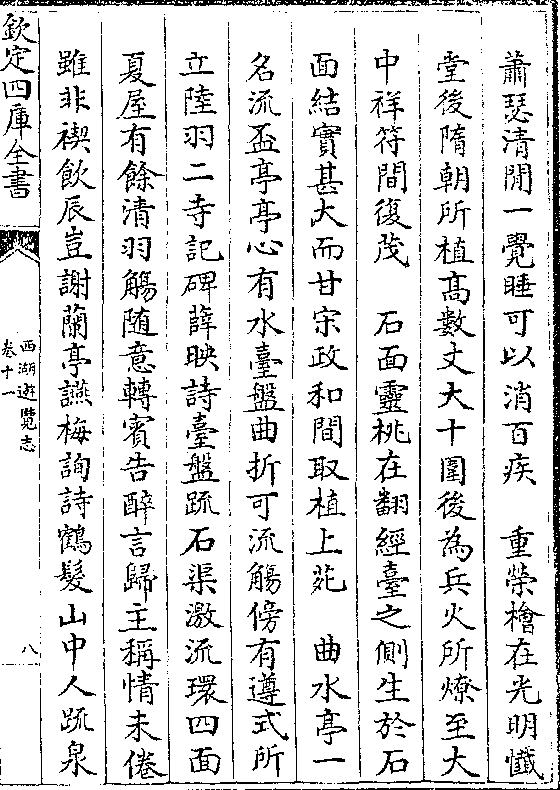 蕭瑟清閒一覺睡可以消百疾　重榮檜在光明懺
堂後隋朝所植髙數丈大十圍後為兵火所燎至大
中祥符間復茂　石面靈桃在翻經臺之側生於石
面結實甚大而甘宋政和間取植上苑　曲水亭一
名流盃亭亭心有水臺盤曲折可流觴傍有遵式所
立陸羽二寺記碑薛映詩臺盤疏石渠激流環四面
夏屋有餘清羽觴随意轉賓告醉言歸主稱情未倦
雖非禊飲辰豈謝蘭亭讌梅詢詩鶴髮山中人疏泉
欽定四庫全書
西湖遊覽志
卷十一
八